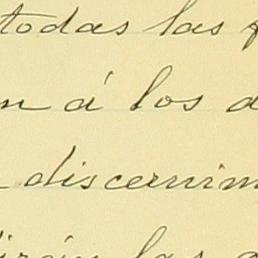 todas las
n á los
discernim
irán las